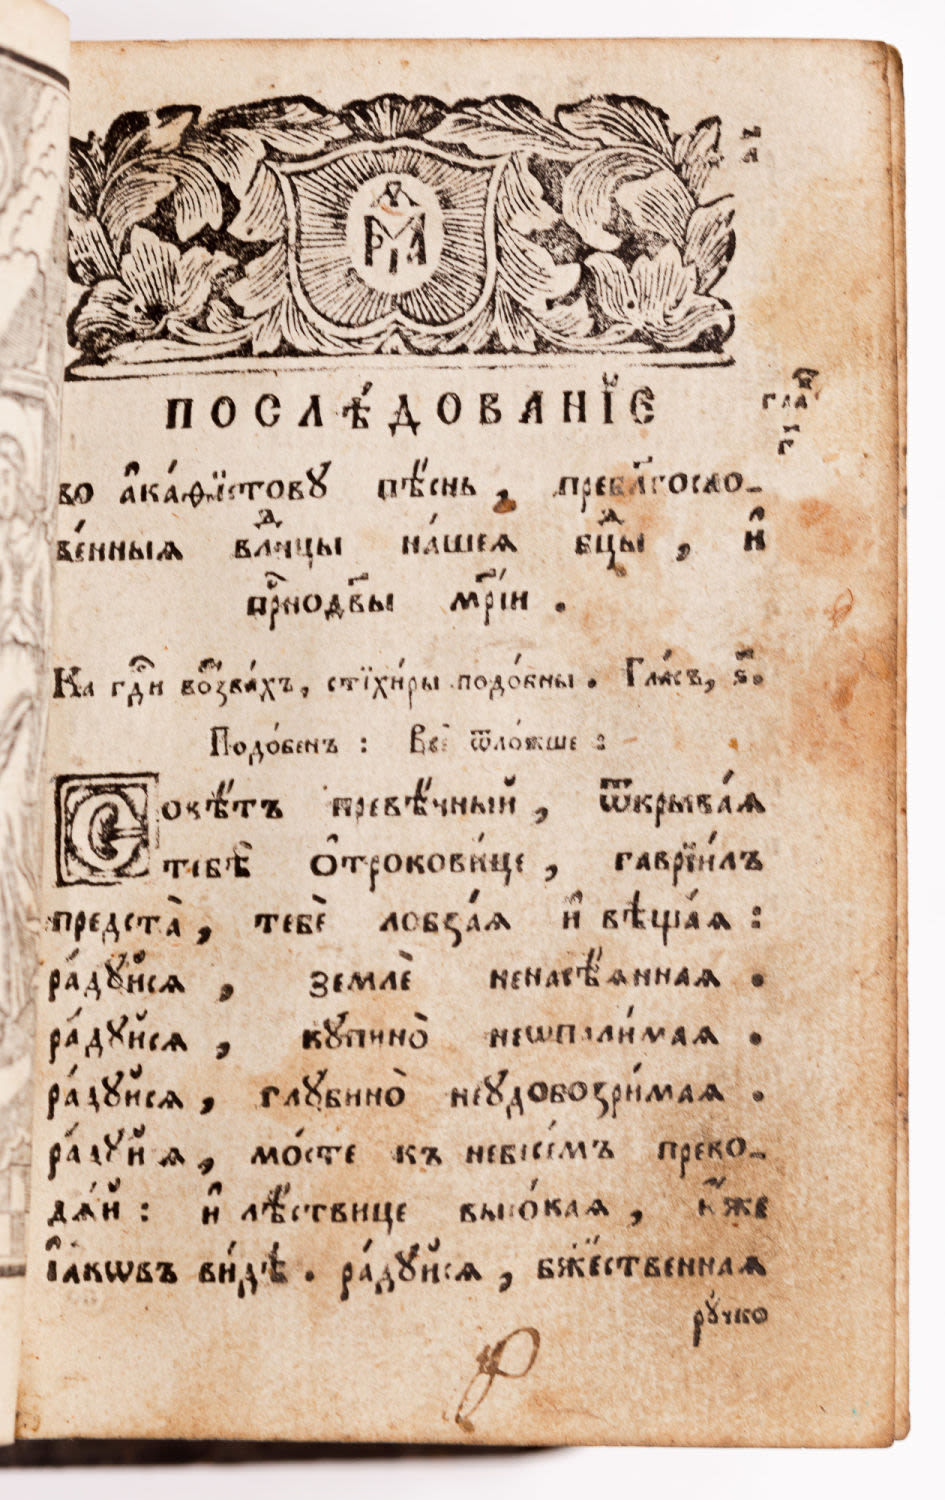 МРІА
а
ПОСЛѢ́ДОВАНЇЕ
гла҃
г҃
во а҆ка́ѳїстову пѣ́снь, пребл҃госло-
ве́нныѧ влⷣчцы на́шеѧ бцⷣы, и҆
прⷭ҇нодв҃ы мр҃їи.
На гдⷭ҇и воззва́хъ, стїхи́ры подо́бны. Гла́съ, ѕ҃.
Подо́бенъ: Всѐ ѿло́жше:
Совѣ́тъ превѣ́чный, ѿкрыва́ѧ
тебѣ̀ ѻ҆трокови́це, гаврїи́лъ
предста̀, тебѐ лобза́ѧ и҆ вѣща́ѧ:
ра́дуйсѧ, землѐ ненасѣ́ѧннаѧ.
ра́дуйсѧ, купино̀ неѡпали́маѧ.
ра́дуйсѧ, глубино̀ неудобозри́маѧ.
ра́дуйсѧ, мо́сте къ небесе́мъ прево-
дѧ́й: и҆ лѣ́ствице высо́каѧ, ю҆́же
і҆а́кѡвъ ви́дѣ. ра́дуйсѧ, бж҃е́ственнаѧ
ру́чко